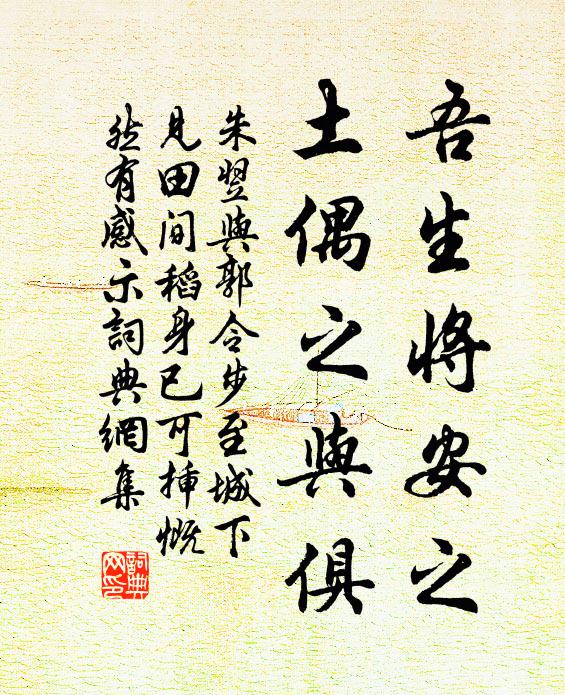 吾生将安之
土偶之與俱
朱翌與郭令步至城下
見田间稻身已可挿慨
然有感示詞典網集
詞典
网印